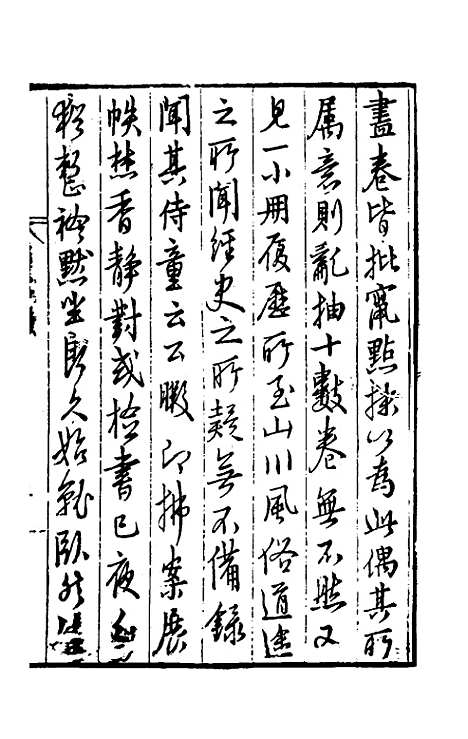 盡卷皆批竄點抹以為此偶其所
屬意則亂抽十數卷無不然又
見一小冊履歷所至山川風俗道途
之所聞經史之所疑無不備錄
聞其侍童云公暇即拂案展
帙焚香靜對或檢書已夜
整襟默坐良久始就臥然